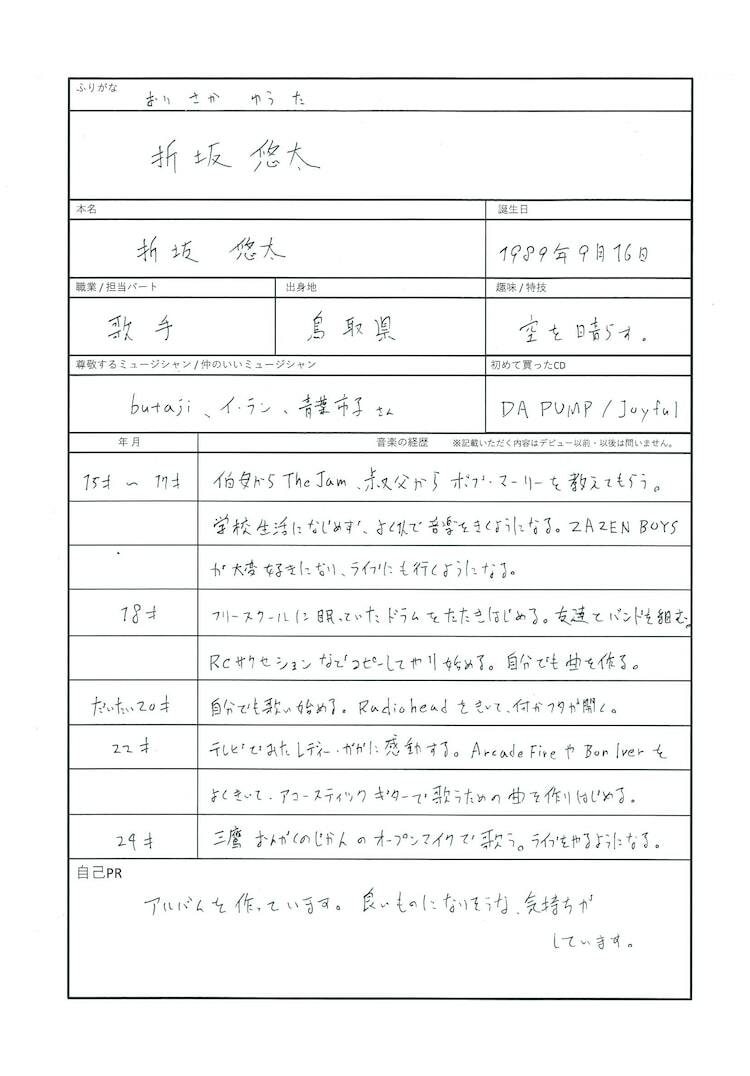 ふりがな
おりさか ゆうた
折坂 悠太
本名 誕生日
折坂 悠太 1989年9月16日
職業/担当パート 出身地 趣味/特技
歌手 鳥取県 空を晴らす。
尊敬するミュージシャン/仲のいいミュージシャン 初めて買ったCD
butaji、イ・ラン、青葉市子さん DA PUMP/Joyful
年月 音楽の経歴 ※記載いただく内容はデビュー以前・以後は問いません。
15才〜17才 伯母からThe Jam、叔父からボブ・マーリーを教えてもらう。
学校生活になじめず、よく1人で音楽をきくようになる。ZAZEN BOYS
が大変好きになり、ライブにも行くようになる。
18才 フリースクールに眠っていたドラムをたたきはじめる。友達とバンドを組む。
RCサクセションなどコピーしてやり始める。自分でも曲を作る。
だいたい20才 自分でも歌い始める。Radioheadをきいて、何かフタが開く。
22才 テレビでみたレディー・ガガに感動する。Arcade FireやBon Iverを
よくきいて、アコースティックギターで歌うための曲を作りはじめる。
24才 三鷹おんがくのじかんのオープンマイクで歌う。ライブをやるようになる。
自己PR
アルバムを作っています。良いものになりそうな、気持ちが
しています。